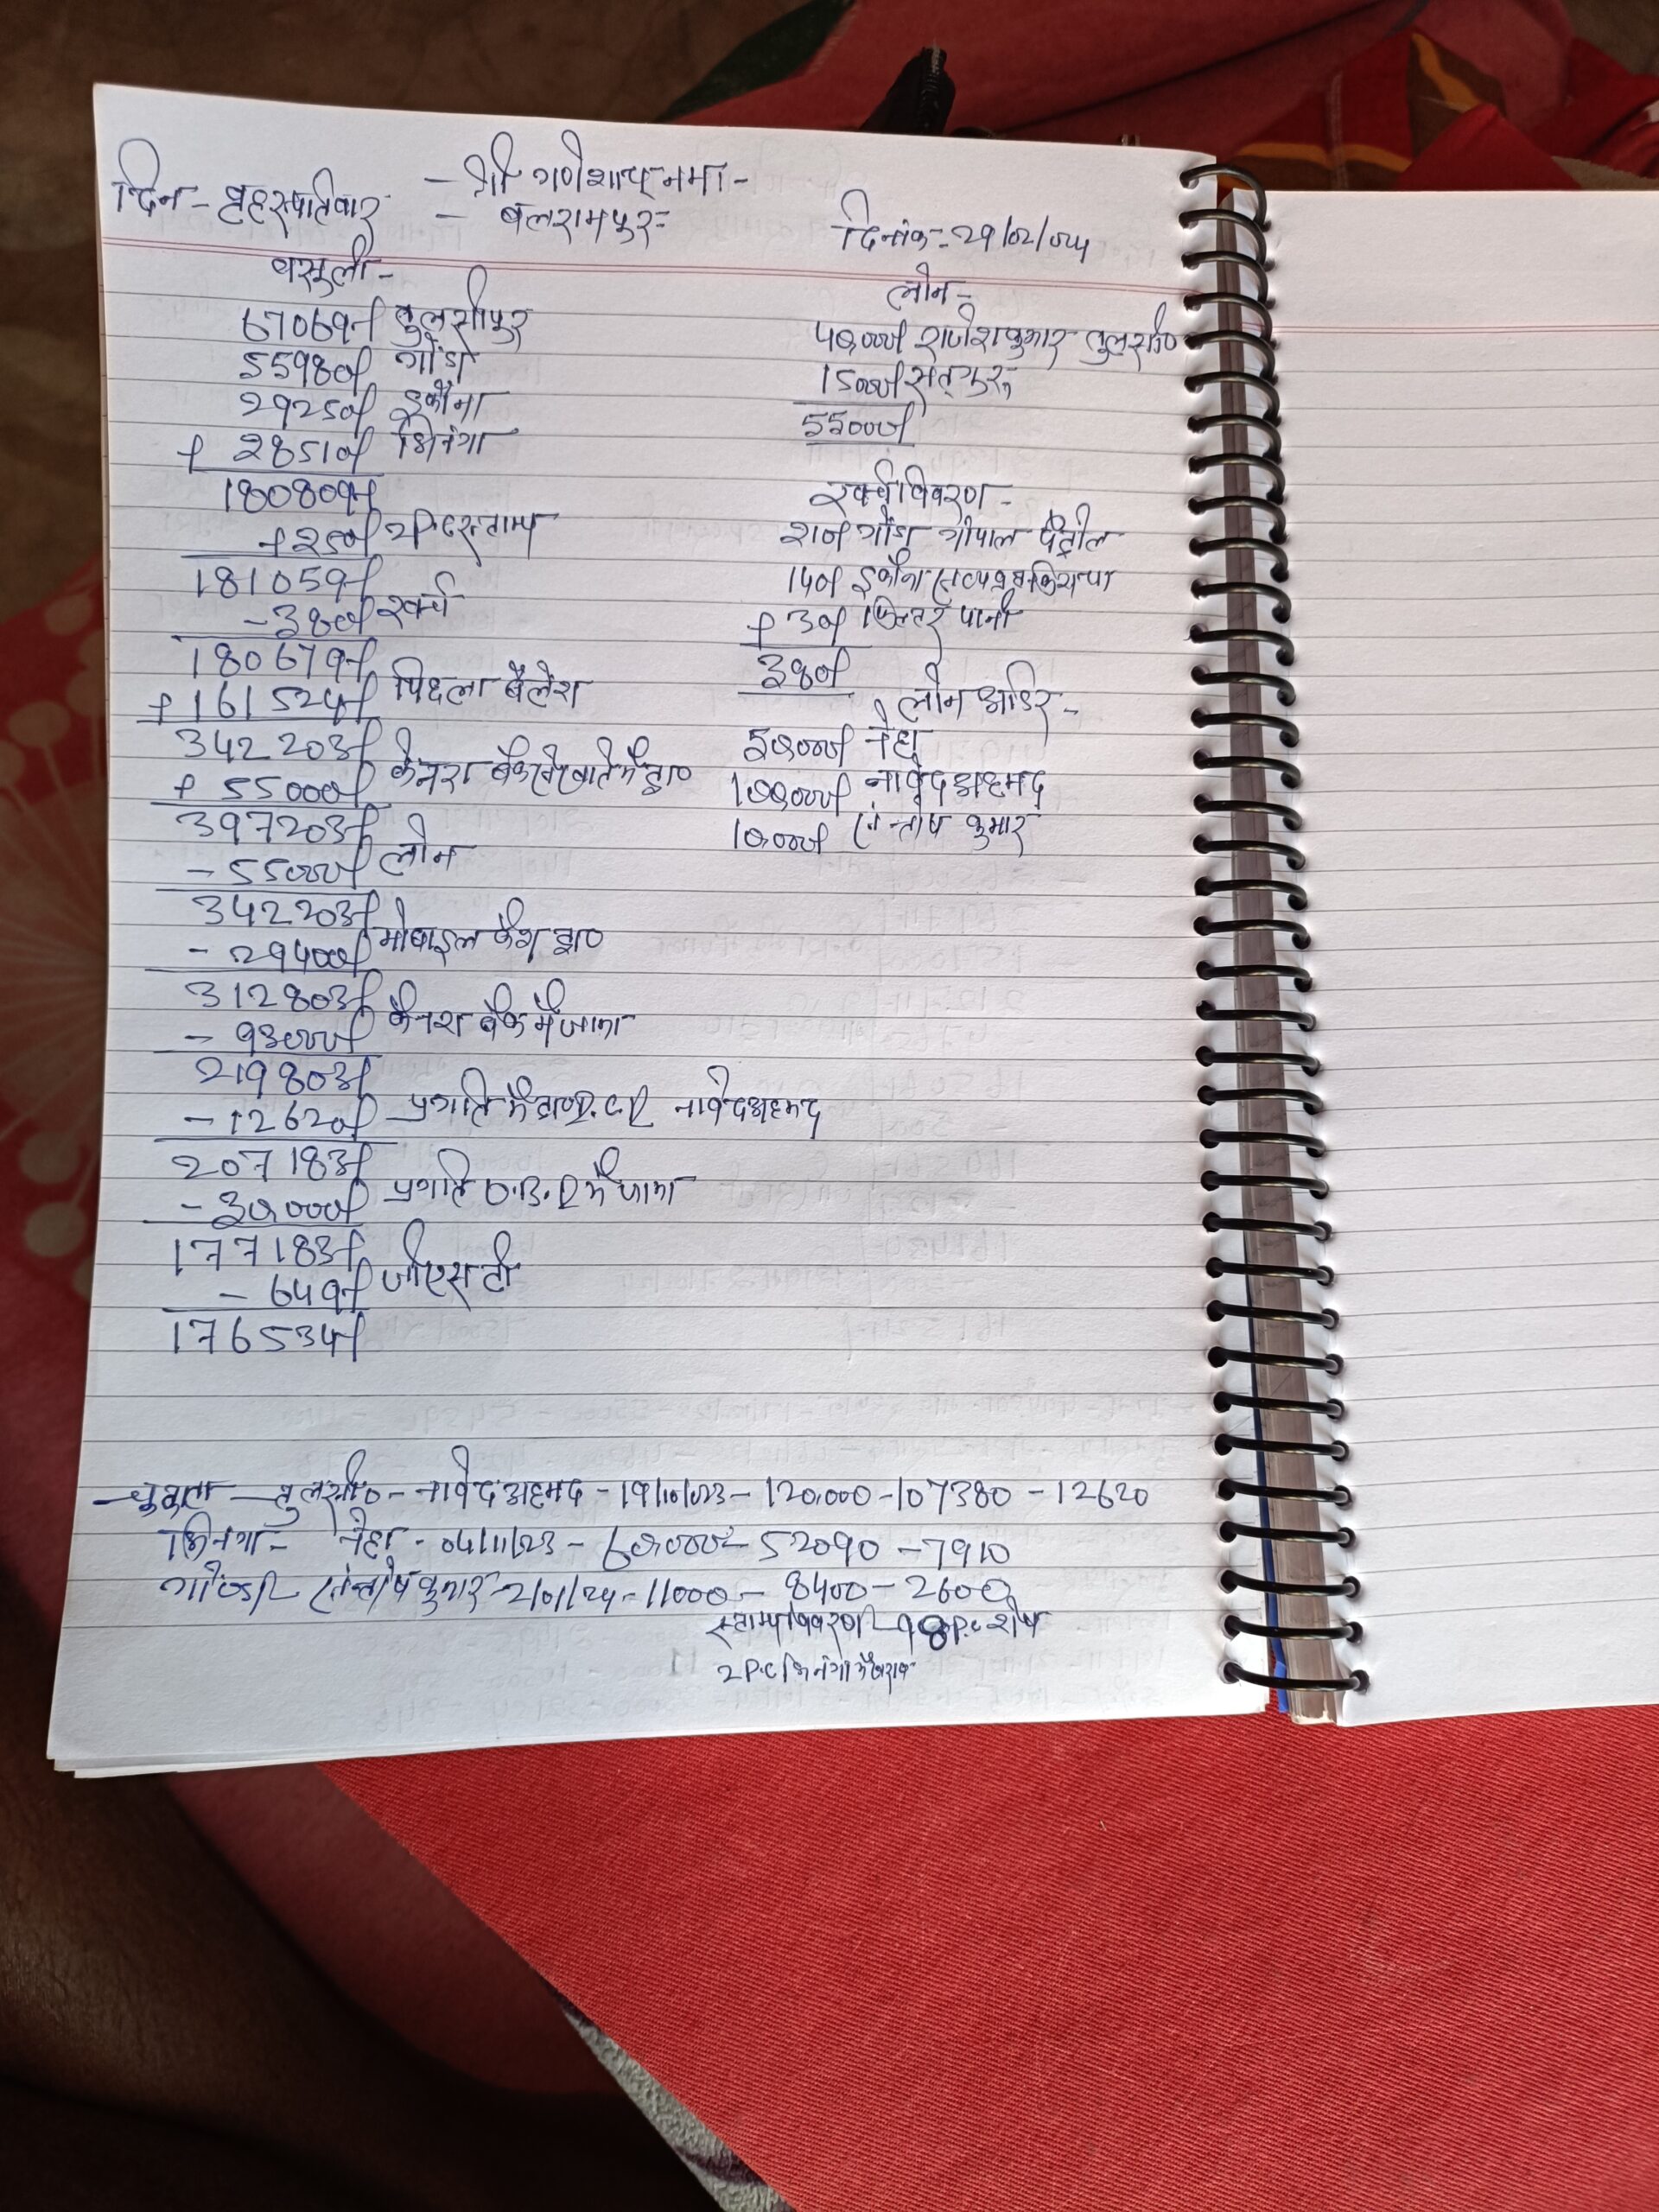 -श्री गणेशाय नमः-
दिन- बृहस्पतिवार - बलरामपुर-
दिनांक- 29/02/024
वसूली-
67069/ तुलसीपुर
55980/ गोंडा
29250/ इकौना
+ 28510/ भिनगा
180809/
+250/ स्टाम्प
181059/
-380/ खर्च
180679/
+161524/ पिछला बैलेंश
342203/
+ 55000/ केनरा बैंक के खाते में ट्रा०
397203/
- 55000/ लोन
342203/
- 29400/ मोबाइल कैश ट्रा०
312803/
- 93000/ कैनरा बैंक में जमा
219803/
-12620/ प्रगति में नावेद अहमद
207183/
-30,000/ प्रगति में जमा
177183/
- 649/ जीएसटी
176534/
लोन-
40,000/ कुमार तुलसी०
15000/ सतगुरु
55000/
खर्च विवरण-
गोंडा गोपाल पेट्रोल
140/ इकौना किराया
+ 30/ फिल्टर पानी
380/
लोन आर्डर-
50,000/ नेहा
100,000/ नावेद अहमद
10,000/ सन्तोष कुमार
-चुकता- तुलसी०- नावेद अहमद -19/10/023- 120,000-107380 -12620
भिनगा- नेहा - 04/11/023 - 60,000/- 52090 -7910
गोण्डा- सन्तोष कुमार- 2/01/24- 11000 - 8400- 2600
स्टाम्प विवरण- 98P.C शेष
2 P.C भिनगा में खराब